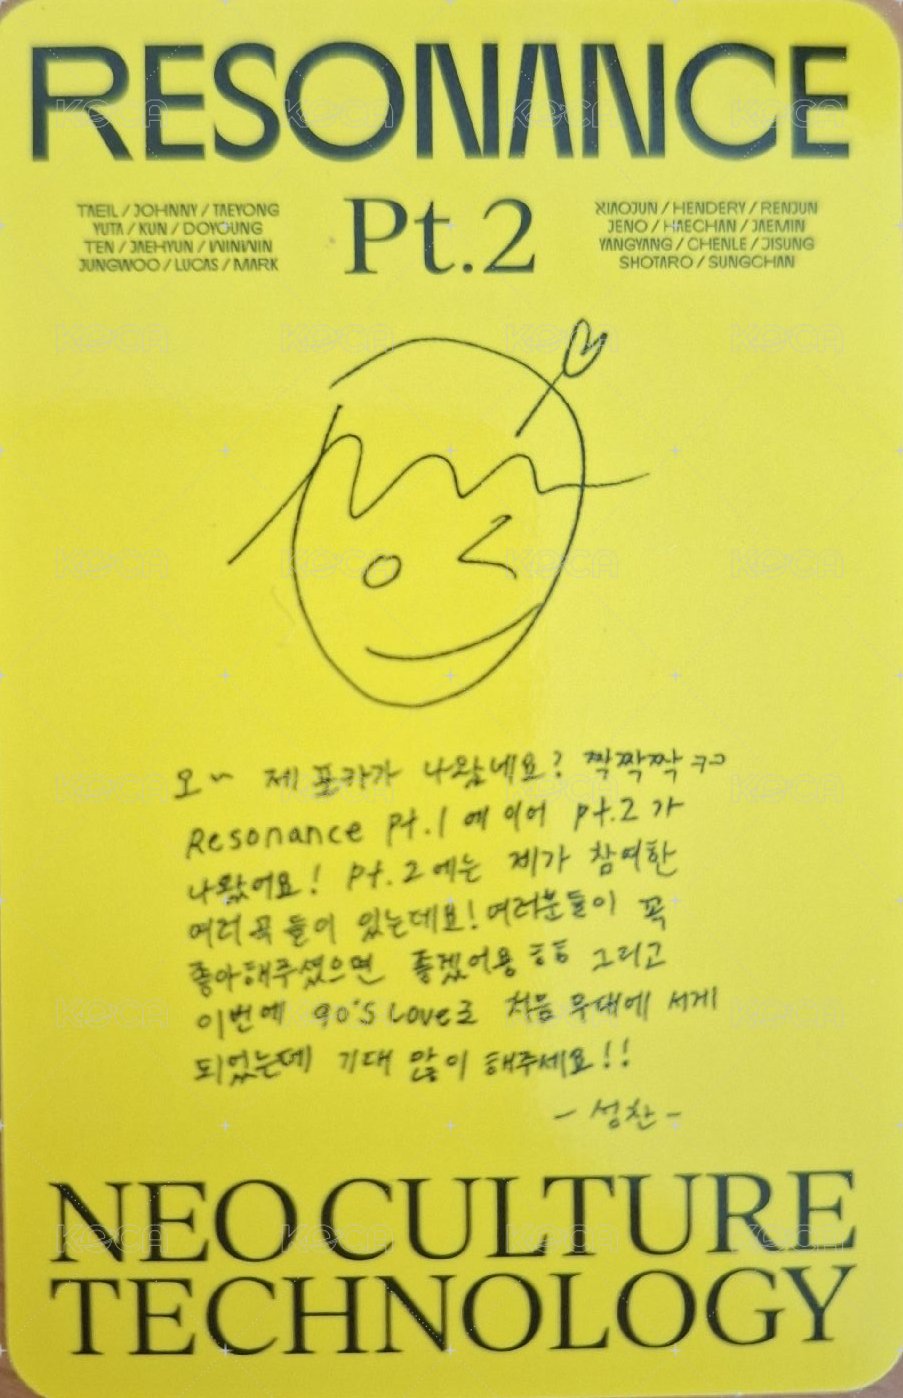 RESONANCE
Pt.2
TAEIL / JOHNNY / TAEYONG
YUTA / KUN / DOYOUNG
TEN / JAEHYUN / WINWIN
JUNGWOO / LUCAS / MARK
XIAOJUN / HENDERY / RENJUN
JENO / HAECHAN / JAEMIN
YANGYANG / CHENLE / JISUNG
SHOTARO / SUNGCHAN
오~ 제 포카가 나왔네요? 짝짝짝 ㅋㅋ
Resonance pt.1 에 이어 pt.2 가
나왔어요! pt.2에는 제가 참여한
여러 곡들이 있는데요! 여러분들이 꼭
좋아해주셨으면 좋겠어용 ㅎㅎ 그리고
이번에 90's Love로 처음 무대에 서게
되었는데 기대 많이 해주세요!!
- 성찬 -
NEO CULTURE
TECHNOLOGY
KOCA